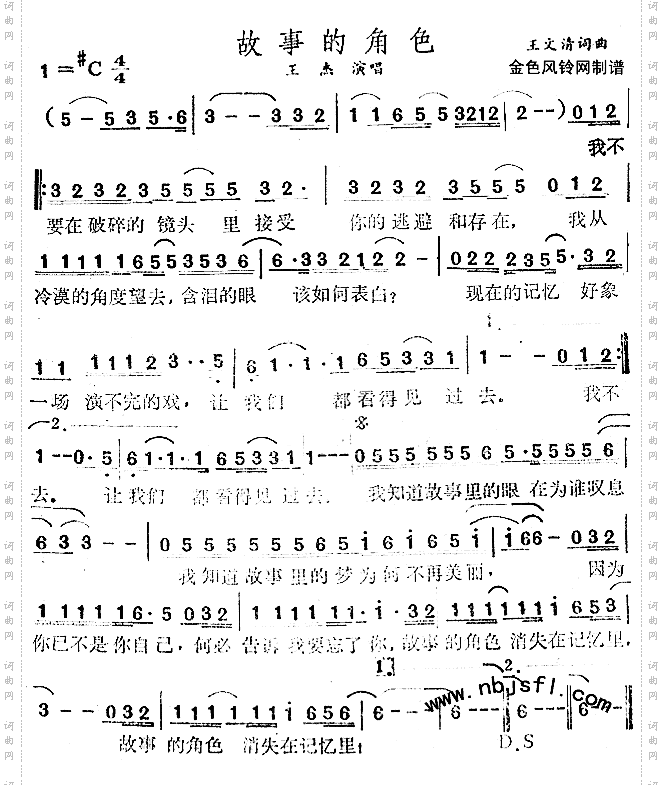 故事的角色
王文清词曲
1=#C 4/4
王 杰 演唱
金色风铃网制谱
(5-535·6 | 3--332 | 116553212 | 2--)012
我不
3232355555 32· | 3232 3555 012
要在破碎的 镜头 里 接受 你的逃避 和存在, 我从
1111165535536 | 6·332122- | 0222355·32
冷漠的角度望去,含泪的眼 该如何表白? 现在的记忆 好象
1.
11 11123··5 | 61·1·165331 | 1--012
一场 演不完的戏, 让 我们 都看得见 过去。 我不
2.
1--0·5 | 61·1·165331 | 1---| 05555555665·555556
去。 让我们 都看得见过去。 我知道故事里的眼 在为谁叹息
633-- | 055555565i6i65i | i66-032
我知道故事里的梦为何不再美丽, 因为
1111116·5032 | 111111·i·32 | 1111111i653
你已不是你自己,何必 告诉 我要忘了你,故事的角色 消失在记忆里,
1.
2.
3--032 | 11111111i656 | 6--
www.nbjsfl.com
6-- | 6---
故事 的角色 消失在记忆里!
D.S
词曲网